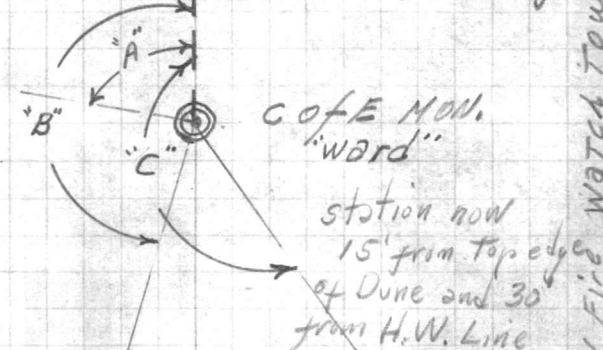 "A"
"B"
"C"
C of E MON.
"ward"
station now
15' from Top edge
of Dune and 30'
from H.W. Line
Fire Watch Tow